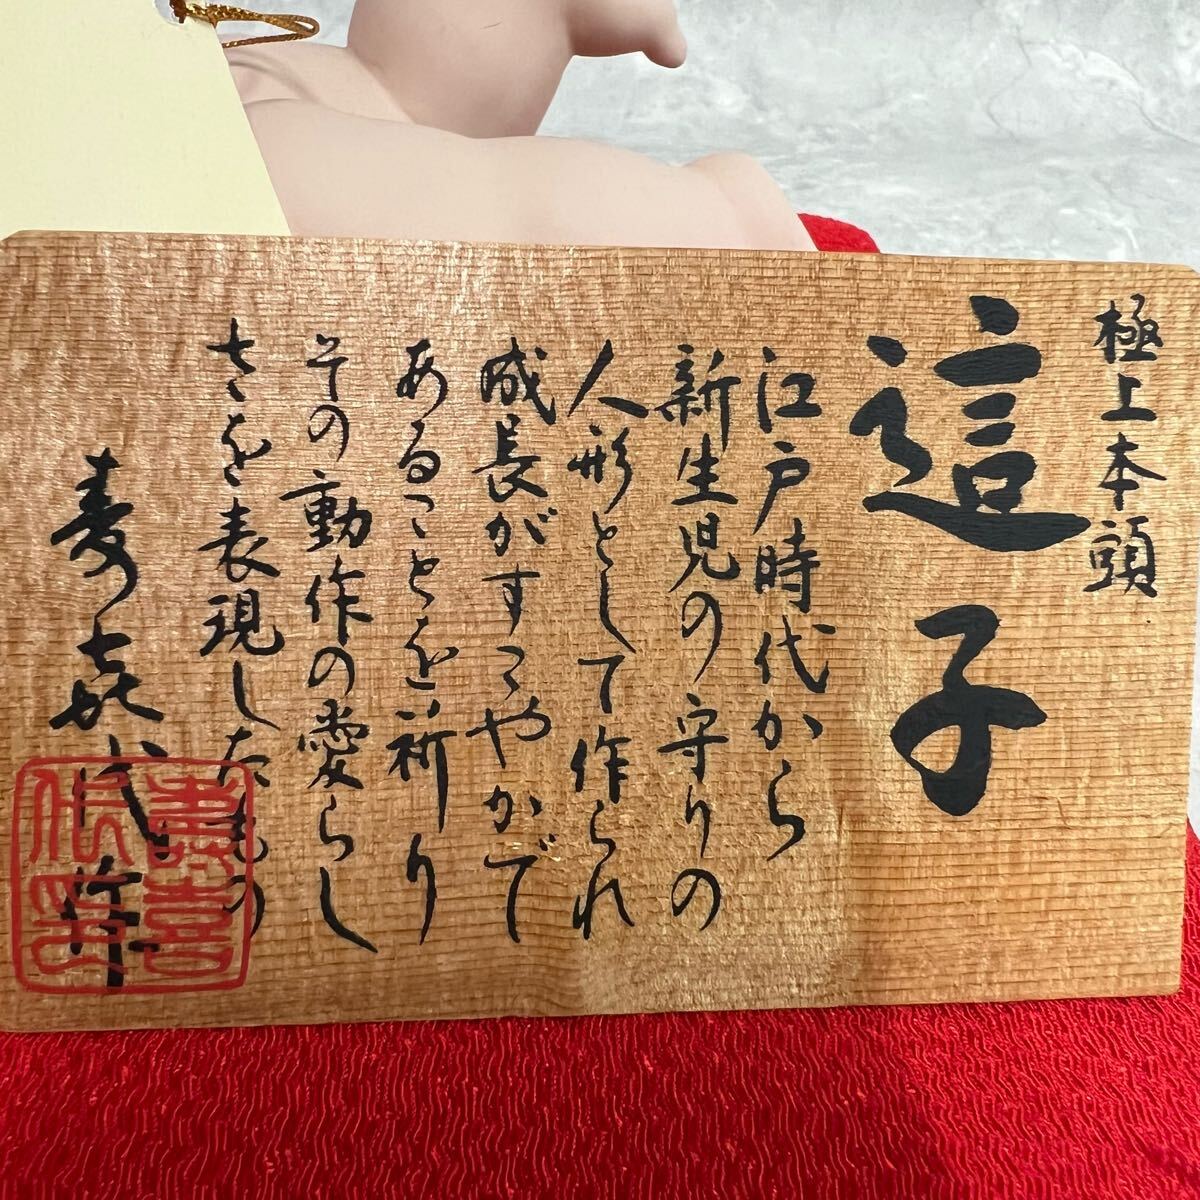 極上本頭
這子
江戸時代から
新生児の守りの
人形として作られ
成長がすこやかで
あることを祈り
その動作の愛らし
さを表現したもの
寿喜代作